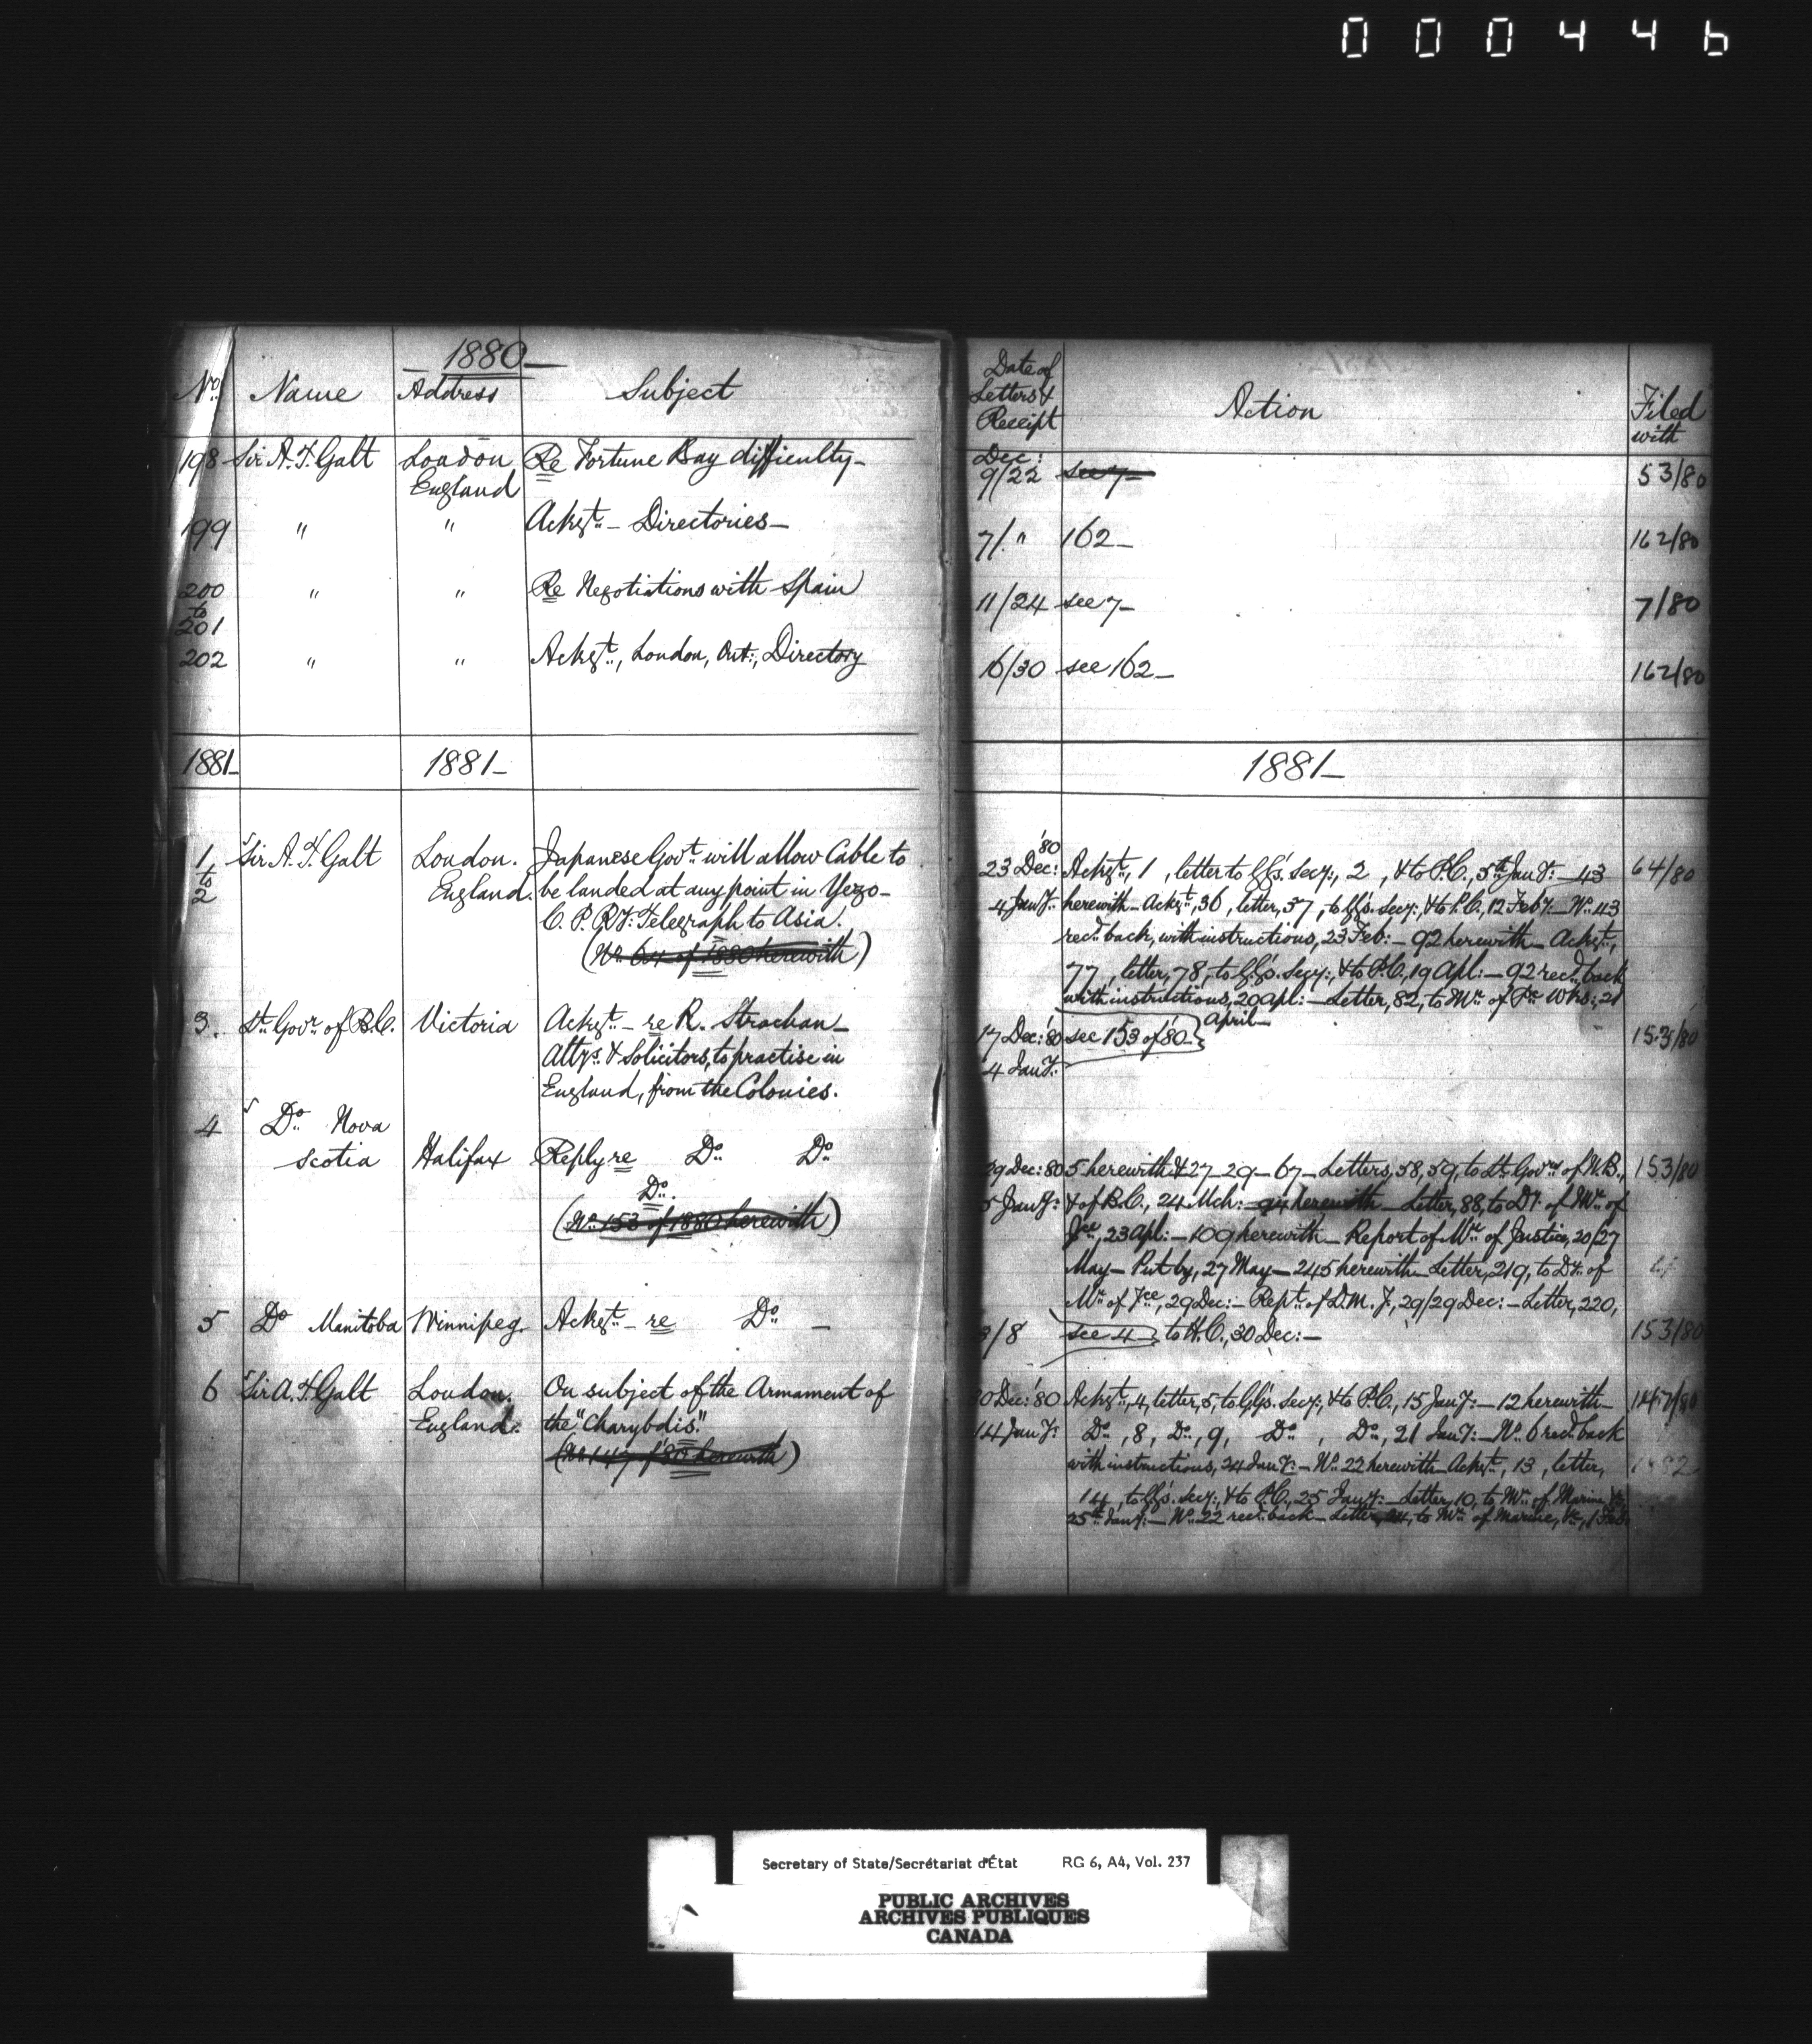 000446
1880
No. Name Address Subject
198 Sir A. T. Galt London Re Fortune Bay difficulty
England
199 " " Ackgt. Directories
200 " " Re Negotiations with Spain
to
201
202 " " Ackgt., London, Ont:, Directory
1881 1881
1 Sir A. T. Galt London. Japanese Govt. will allow Cable to
to England. be landed at any point in Yezo
2 C. P. Ry. Telegraph to Asia.
(No. 64 of 1880 herewith)
3. Lt. Govr. of B.C. Victoria Ackgt. re R. Strachan
Attys. & Solicitors, to practise in
England, from the Colonies.
4 Do. Nova
Scotia Halifax Reply re Do. Do.
Do.
(No. 153 of 1880 herewith)
5 Do Manitoba Winnipeg. Ackgt. re Do.
6 Sir A. T. Galt London. On subject of the Armament of
England. the "Charybdis".
(No. 147 of '80 herewith)
Date of
Letters &
Receipt Action Filed
with
Dec:
9/22 see 7 53/80
7/ " 162 162/80
11/24 see 7 7/80
16/30 see 162 162/80
1881
'80
23 Dec: Ackgt., 1, letter to GG's. Secy:, 2, & to P.C., 5th Jany: 43 64/80
4 Jany: herewith Ackgt., 36, letter, 37, to GG's. Secy:, & to P.C., 12 Feby: No. 43
recd. back, with instructions, 23 Feb: 92 herewith Ackgt.,
77, letter, 78, to GG's. Secy:, & to P.C., 19 Apl: 92 recd. back
with instructions, 20 Apl: Letter, 82, to Mr. of Pc. Wks:, 21
April
17 Dec: '80 see 153 of '80 153/80
4 Jany:
29 Dec: 80 5 herewith & 27 29 67 Letters, 58, 59, to Lt. Govrs. of N.B., 153/80
5 Jany: & of B.C., 24 Mch: 94 herewith Letter, 88, to Dy. of Mr. of
Jce., 23 Apl: 109 herewith Report of Mr. of Justice, 20/27
May Put by, 27 May 245 herewith Letter, 219, to Dy. of
Mr. of Jce, 29 Dec: Rept. of D.M.J., 29/29 Dec: Letter, 220,
3/8 see 4 to H.C., 30 Dec: 153/80
30 Dec: '80 Ackgt., 4, letter, 5, to GG's. Secy:, & to P.C., 15 Jany: 12 herewith 147/80
14 Jany: Do., 8, Do., 9, Do., Do., 21 Jany: No. 6 recd. back
with instructions, 24 Jany: No. 22 herewith Ackgt., 13, letter,
14, to GG's. Secy:, & to P.C., 25 Jany: Letter, 10, to Mr. of Marine &c,
25th Jany: No. 22 recd. back Letter, 24, to Mr. of Marine, &c, 1 Feb.
Secretary of State/Secrétariat d'État RG 6, A4, Vol. 237
PUBLIC ARCHIVES
ARCHIVES PUBLIQUES
CANADA